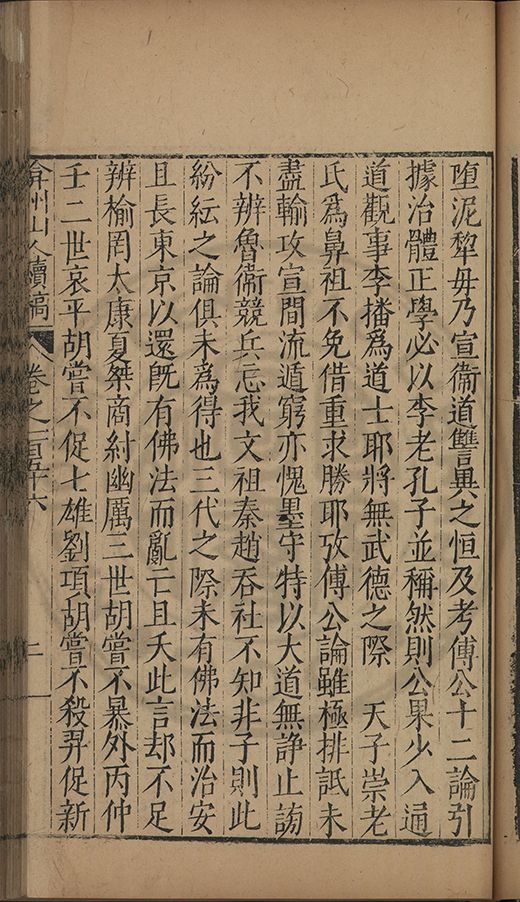 堕泥犁毋乃宣衞道讐異之恒及考傅公十二論引
據治體正學必以李老孔子並稱然則公果少入通
道觀事李播爲道士耶將無武德之際　天子崇老
氏爲鼻祖不免借重求勝耶攷傅公論雖極排詆未
盡輸攻宣間流遁窮亦愧墨守特以大道無諍止謗
不辨魯衞競兵忘我文祖秦趙吞社不知非子則此
紛紜之論俱未爲得也三代之際未有佛法而治安
且長東京以還旣有佛法而亂亡且夭此言却不足
辨榆罔太康夏桀商紂幽厲三世胡嘗不暴外丙仲
壬二世哀平胡嘗不促七雄劉項胡嘗不殺羿促新
弇州山人續稿 卷之一百五十六 二